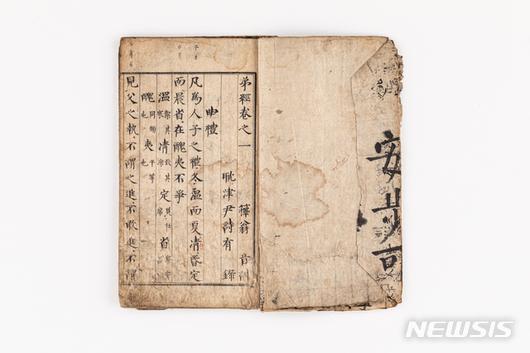 安步可
弟經卷之一
翁 音
耽津尹詩有
曲禮
凡爲人子之禮冬溫而夏凊昏定
而晨省在醜夷不爭
溫 凊 定 省
醜 夷
見父之執不謂之進不敢進不謂
NEWSIS